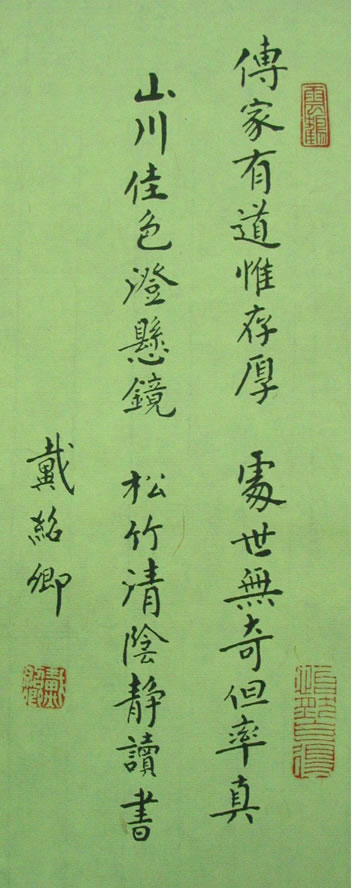 傳家有道惟存厚 處世無奇但率真
山川佳色澄懸鏡 松竹清陰静讀書
戴紹卿